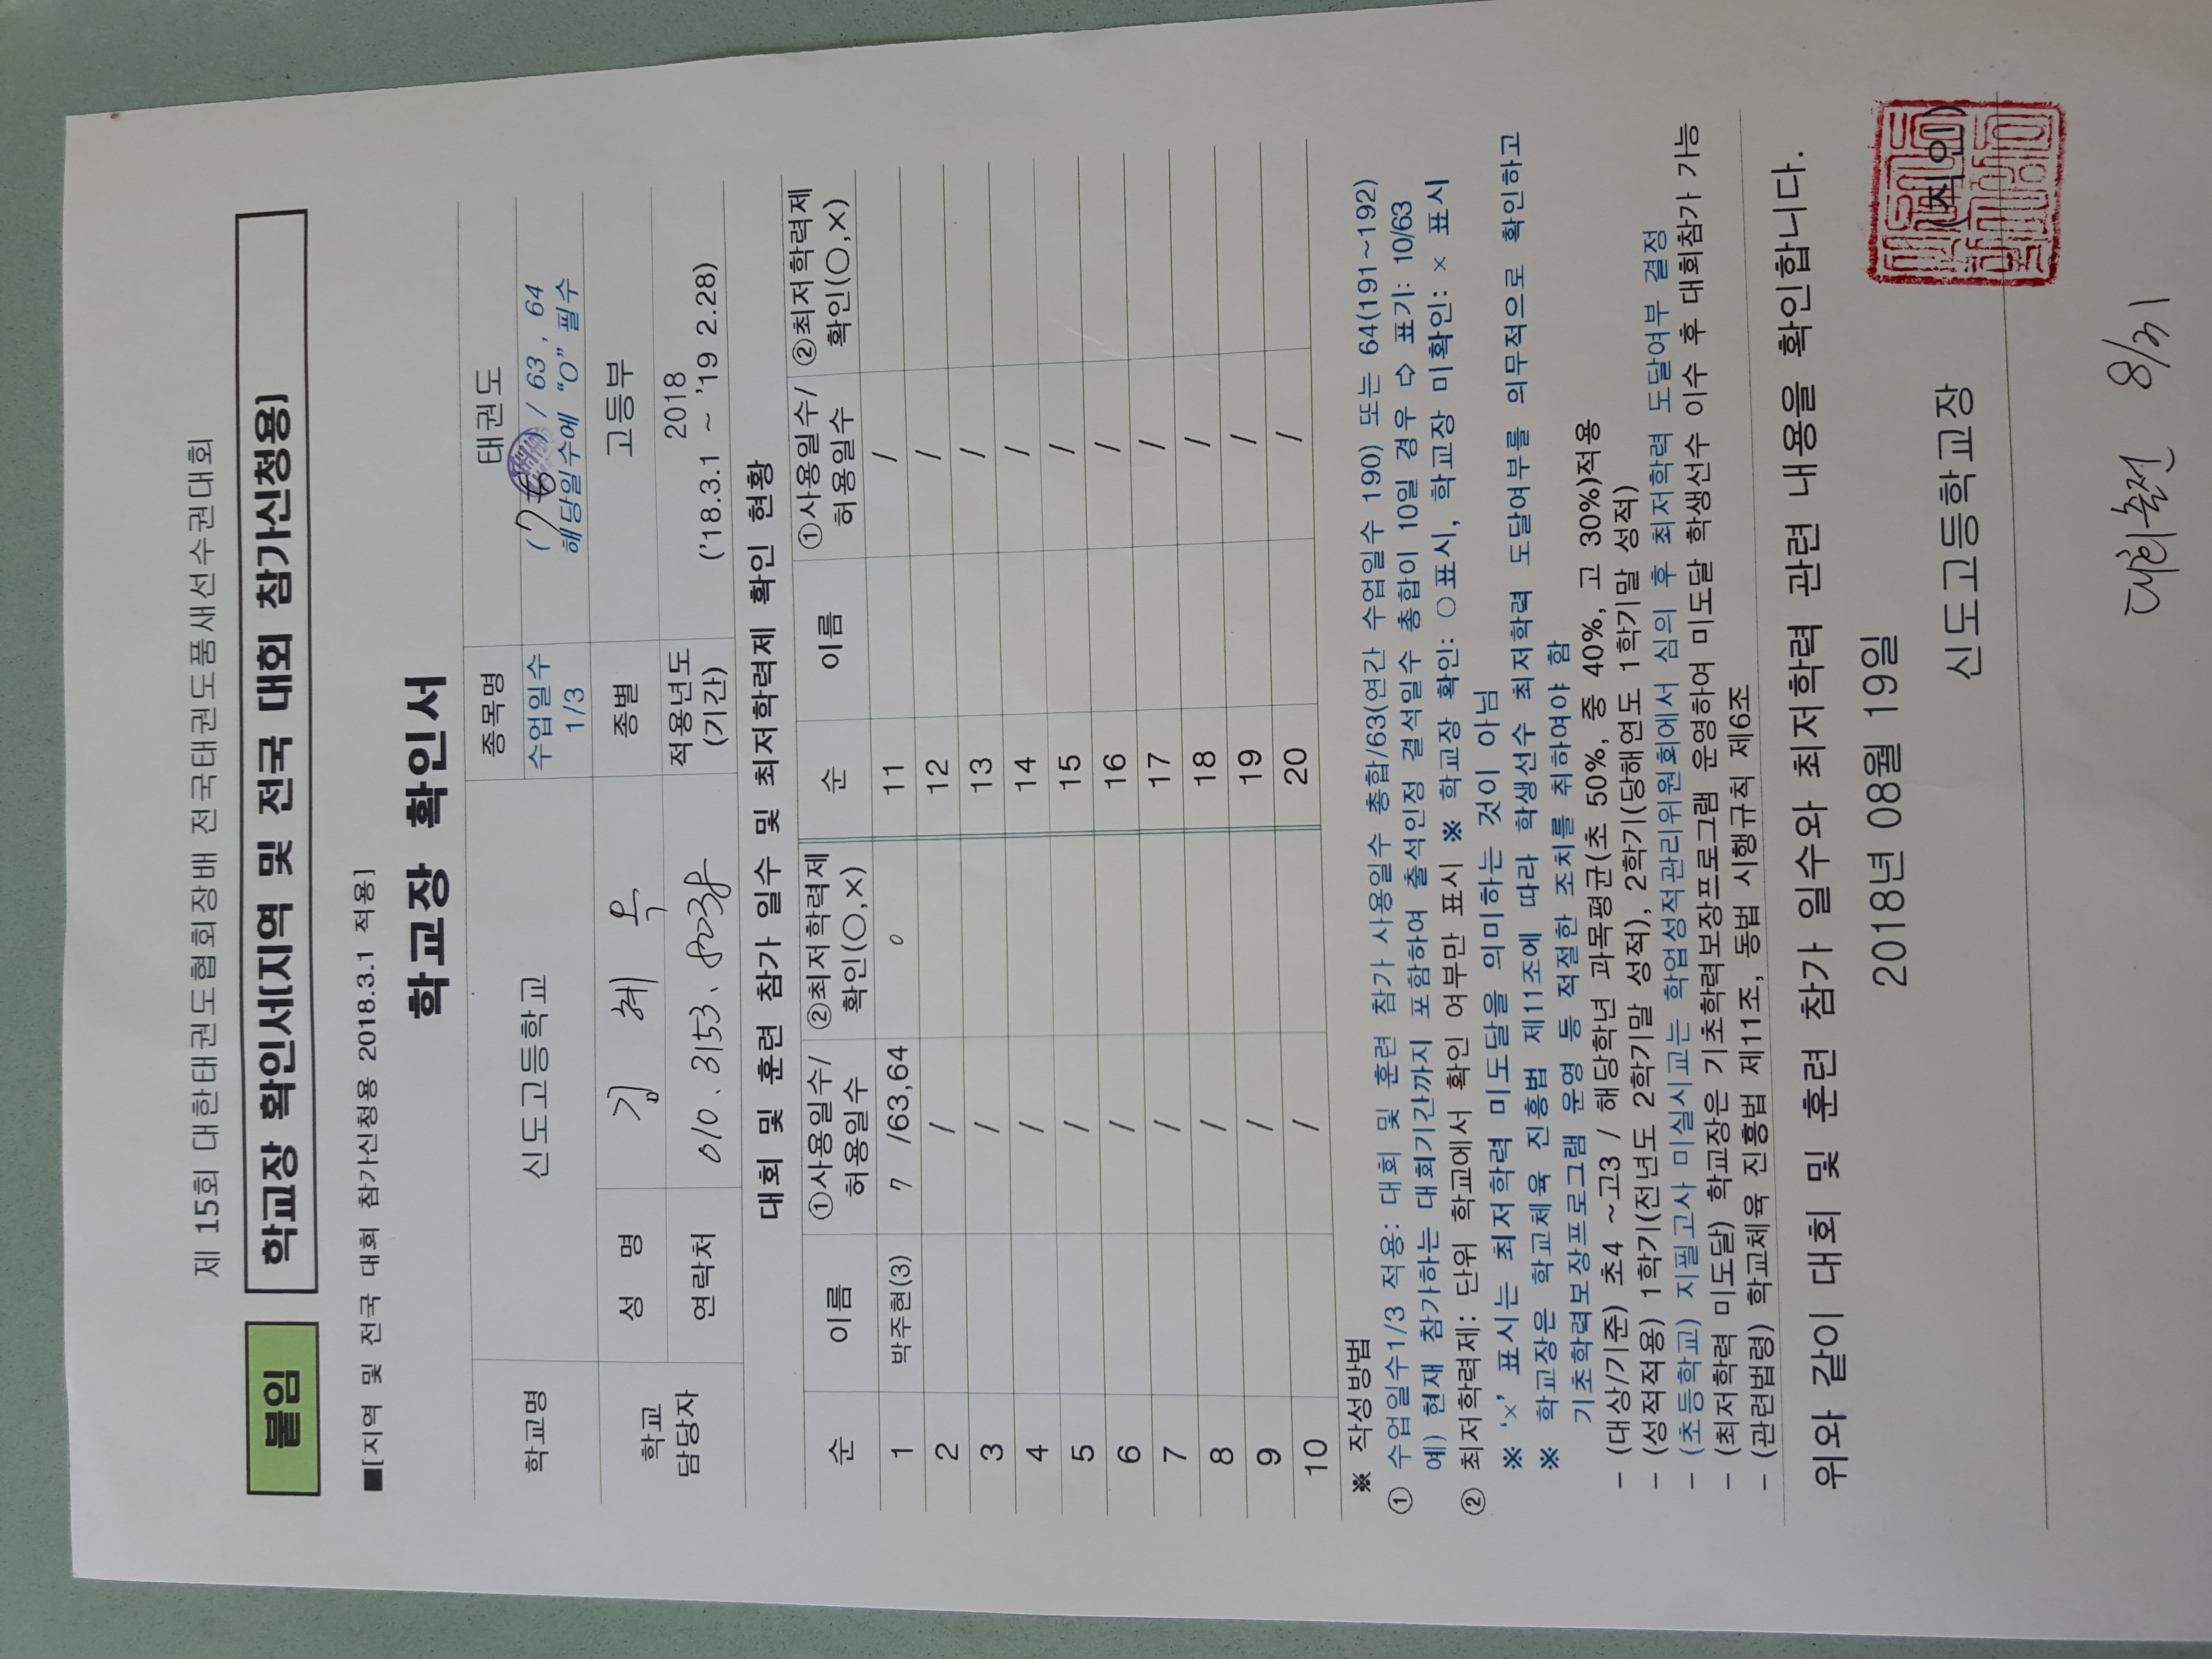 제 15회 대한태권도협회장배 전국태권도품새선수권대회
붙임 학교장 확인서[지역 및 전국 대회 참가신청용]
■[지역 및 전국 대회 참가신청용 2018.3.1 적용]
학교장 확인서
학교명 신도고등학교 종목명 태권도
수업일수 1/3 (7 / 63, 64
해당일수에 “O” 필수
학교 담당자 성 명 김 혜 옥 종별 고등부
연락처 010.3153.8238 적용년도 (기간) 2018
('18.3.1 ~ '19 2.28)
대회 및 훈련 참가 일수 및 최저학력제 확인 현황
순 이름 ①사용일수/허용일수 ②최저학력제 확인(○,×) 순 이름 ①사용일수/허용일수 ②최저학력제 확인(○,×)
1 박주현(3) 7 /63,64 ○ 11 /
2 / 12 /
3 / 13 /
4 / 14 /
5 / 15 /
6 / 16 /
7 / 17 /
8 / 18 /
9 / 19 /
10 / 20 /
※ 작성방법
① 수업일수1/3 적용: 대회 및 훈련 참가 사용일수 총합/63(연간 수업일수 190) 또는 64(191~192)
예) 현재 참가하는 대회기간까지 포함하여 출석인정 결석일수 총합이 10일 경우 ⇨ 표기: 10/63
② 최저학력제: 단위 학교에서 확인 여부만 표시 ※ 학교장 확인: ○표시, 학교장 미확인: × 표시
※ ‘×’ 표시는 최저학력 미도달을 의미하는 것이 아님
※ 학교장은 학교체육 진흥법 제11조에 따라 학생선수 최저학력 도달여부를 의무적으로 확인하고
기초학력보장프로그램 운영 등 적절한 조치를 취하여야 함
- (대상/기준) 초4 ~ 고3 / 해당학년 과목평균(초 50%, 중 40%, 고 30%)적용
- (성적적용) 1학기(전년도 2학기말 성적), 2학기(당해연도 1학기말 성적)
- (초등학교) 지필고사 미실시교는 학업성적관리위원회에서 심의 후 최저학력 도달여부 결정
- (최저학력 미도달) 학교장은 기초학력보장프로그램 운영하여 미도달 학생선수 이수 후 대회참가 가능
- (관련법령) 학교체육 진흥법 제11조, 동법 시행규칙 제6조
위와 같이 대회 및 훈련 참가 일수와 최저학력 관련 내용을 확인합니다.
2018년 08월 19일
신도고등학교장 (직인)
대회출전 8/31